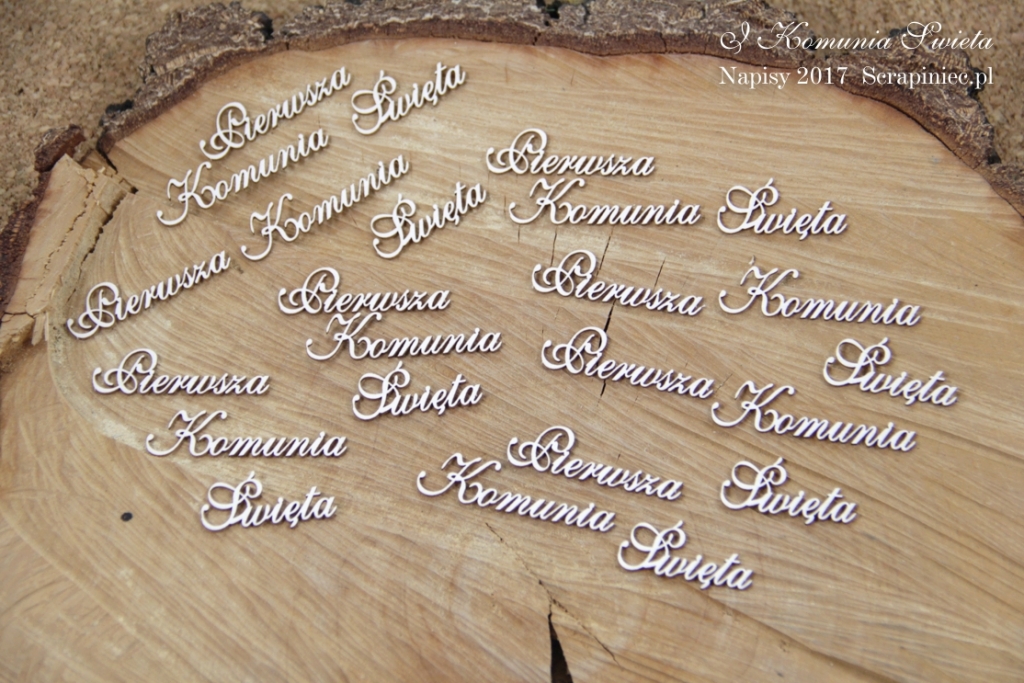 I Komunia Święta
Napisy 2017 Scrapiniec.pl
Pierwsza
Komunia Święta
Pierwsza Komunia Święta
Pierwsza
Komunia Święta
Pierwsza
Komunia
Święta
Pierwsza Komunia
Święta
Pierwsza
Komunia
Święta
Pierwsza Komunia
Święta
Pierwsza
Komunia
Święta